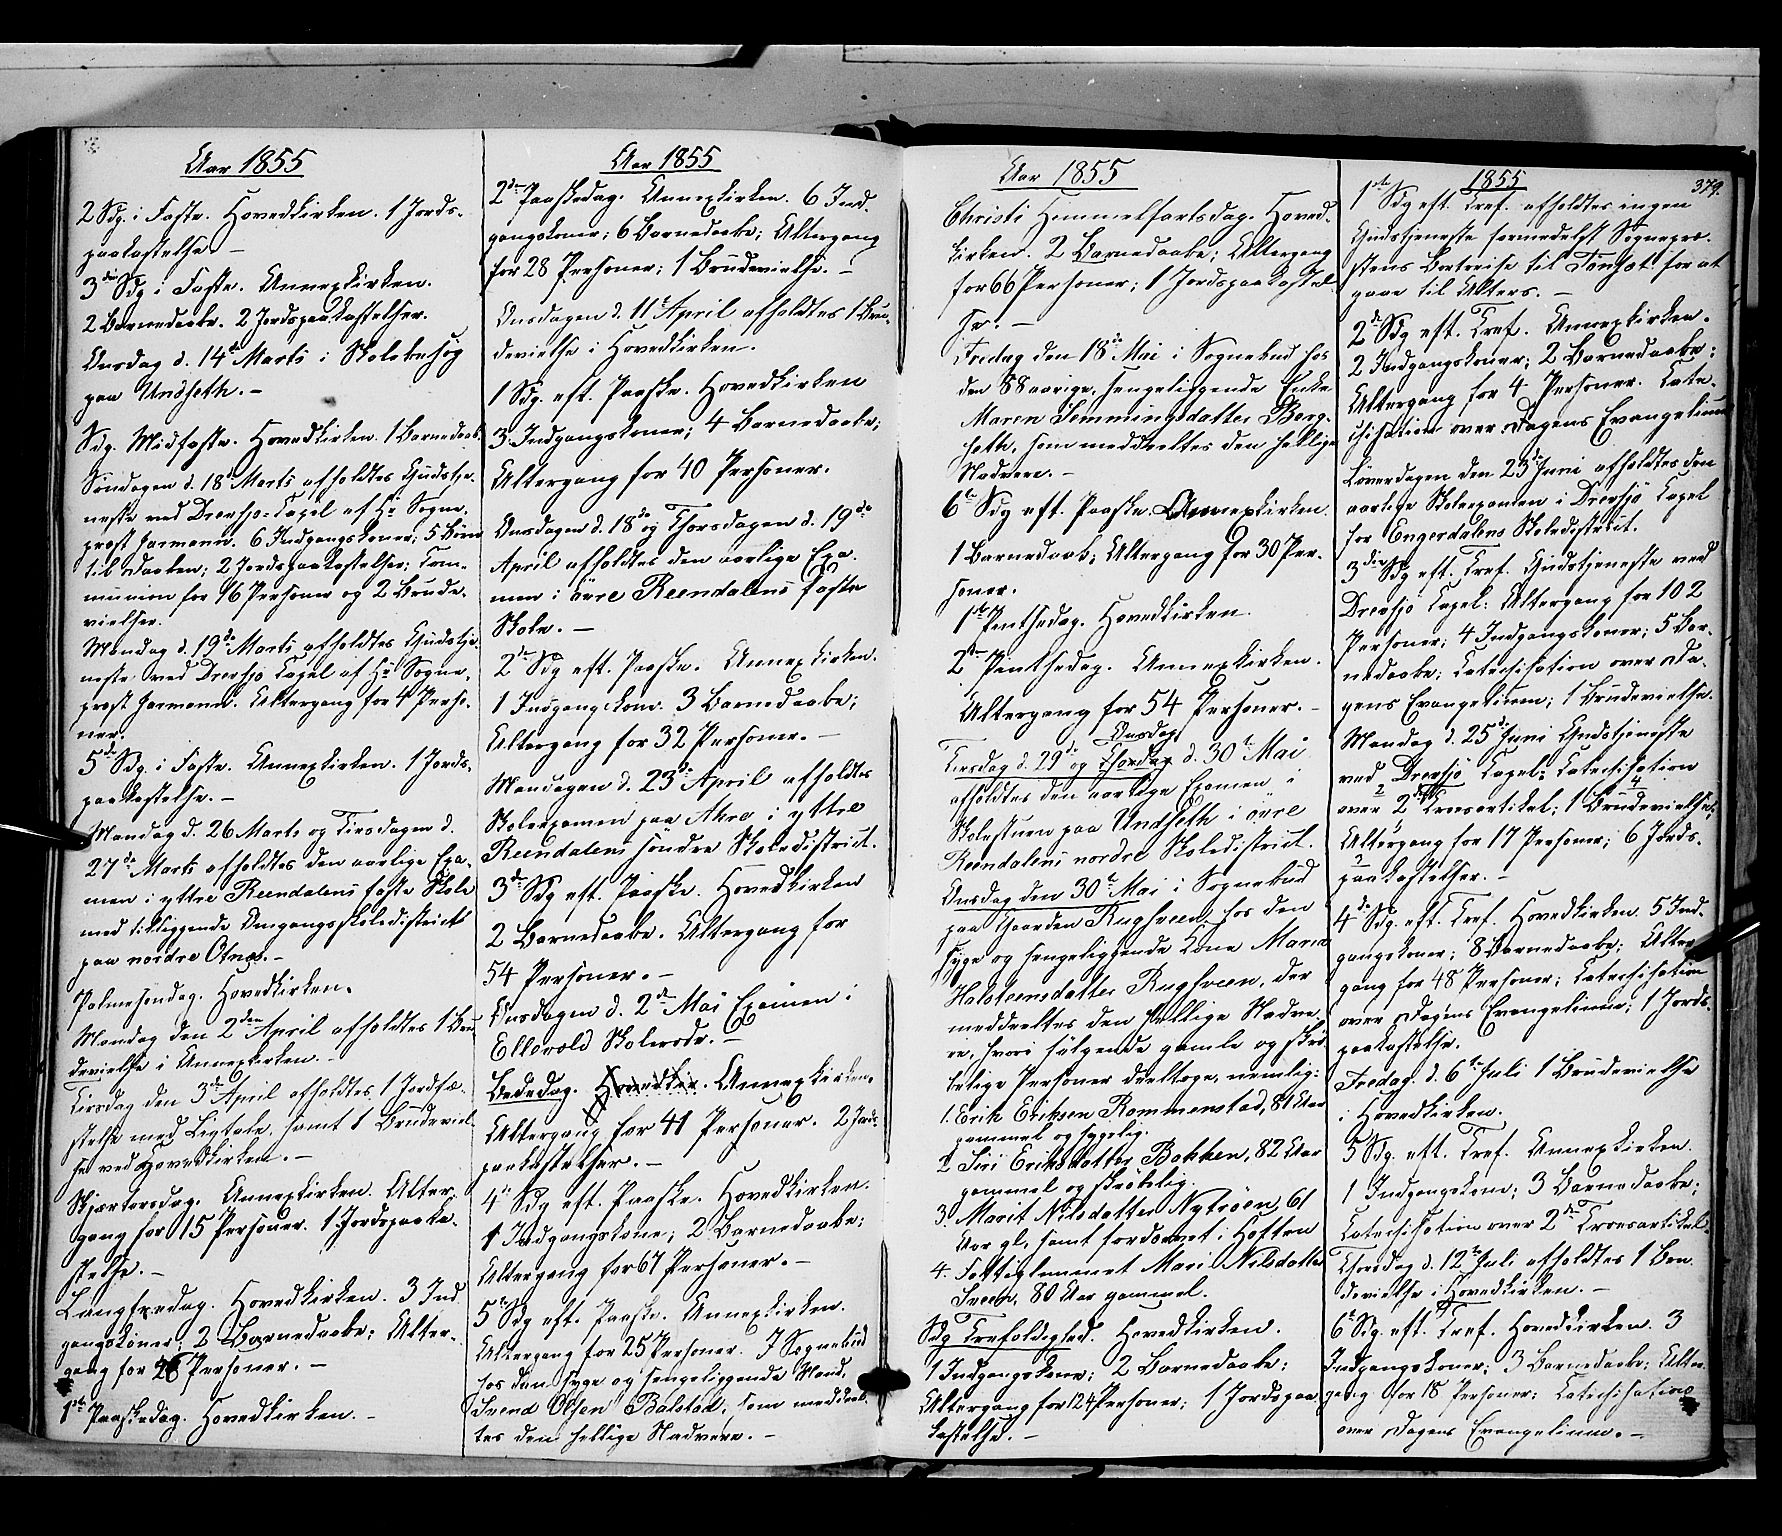 Aar 1855
2 Sdg. i Faste. Hovedkirken. 1 Jords-
paakastelse. –
3die Sdg i Faste. Annexkirken.
2 Barnedaabe. 2 Jordspaakastelser.
Onsdag d. 14de Marts i Skolebesøg
paa Undseth. –
Sdg. Midfaste. Hovedkirken. 1 Barnedaab.
Søndagen d. 18de Marts afholdtes Gudstje-
neste ved Drevsjø-Capel af Hr Sogne-
prost Jarmann. 6 Indgangskoner; 5 Børn
til Daaben; 2 Jordspaakastelser; Com-
munion for 16 Personer og 2 Brude-
vielser.
Mandag d. 19de Marts afholdtes Gudstje-
neste ved Drevsjø Capel af Hr Sogne-
prost Jarmann. Altergang for 4 Perso-
ner.
5de Sdg. i Faste. Annexkirken. 1 Jords-
paakastelse. –
Mandag d. 26 Marts og Tirsdagen d.
27de Marts afholdtes den aarlige Exa-
men i yttre Reendalens faste Skole
med tilliggende Omgangsskoledistrict
paa nordre Otnes. –
Palmesøndag. Hovedkirken.
Mandag den 2den April afholdtes 1 Bru-
devielse i Annexkirken. –
Tirsdag den 3de April afholdtes 1 Jordfæ-
stelse med Ligtale, samt 1 Brudeviel-
se ved Hovedkirken. –
Skjærtorsdag. Annexkirken. Alter-
gang for 15 Personer. 1 Jordspaaka-
stelse. –
Langfredag. Hovedkirken. 3 Ind-
gangskoner; 2 Barnedaabe; Alter-
gang for 28 Personer. –
1ste Paaskedag. Hovedkirken. –
Aar 1855
2den Paaskedag. Annexkirken. 6 Ind-
gangskoner; 6 Barnedaabe; Altergang
for 28 Personer; 1 Brudevielse. –
Onsdagen d. 11te April afholdtes 1 Bru-
devielse i Hovedkirken.
1 Sdg. eft. Paaske. Hovedkirken
3 Indgangskoner; 4 Barnedaabe;
Altergang for 40 Personer.
Onsdagen d. 18de og Thorsdagen d. 19de
April afholdtes den aarlige Exa-
men i øvre Reendalens faste
Skole. –
2den Sdg eft. Paaske. Annexkirken.
1 Indgangskone. 3 Barnedaabe;
Altergang for 32 Personer. –
Mandagen d. 23de April afholdtes
Skoleexamen paa Akre i yttre
Reendalens søndre Skoledistrict.
3die Sdg eft. Paaske. Hovedkirken
2 Barnedaabe. Altergang for
54 Personer. –
Onsdagen d. 2den Mai Examen i
Ellevold Skolerode. –
Bededag. Hovedkir. Annexkirken.
Altergang for 41 Personer. 2 Jords-
paakastelser. –
4de Sdg eft. Paaske. Hovedkirken.
1 Indgangskone; 2 Barnedaabe;
Altergang for 67 Personer. –
5te Sdg eft. Paaske. Annexkirken.
Altergang for 25 Personer. I Sognebud
hos den syge og sengeliggende Mand,
Svend Olsen Balstad, som meddeel-
tes den hellige Nadvere. –
Aar 1855
Christi Himmelfartsdag. Hoved-
kirken. 2 Barnedaabe; Altergang
for 66 Personer; 1 Jordspaakastel-
se. –
Fredag den 18de Mai i Sognebud hos
den 88 aarige, sengeliggende Enke
Maren Semmingsdatter Berg-
seth, som meddeeltes den hellige
Nadvere. –
6te Sdg eft. Paaske. Annexkirken.
1 Barnedaab; Altergang for 30 Per-
soner.
1ste Pintsedag. Hovedkirken.
2den Pintsedag. Annexkirken.
Altergang for 54 Personer. –
Onsdag
Tirsdag d. 29de og Thorsdag d. 30te Mai
afholdtes den aarlige Examen i
Skolestuen paa Undseth i øvre
Reendalens nordre Skoledistrict.
Onsdag den 30te Mai i Sognebud
paa Gaarden Rugsveen hos den
syge og sengeliggende Kone Maren
Halsteensdatter Rugsveen, der
meddeeltes den hellige Nadve-
re, hvori følgende gamle og skrø-
belige Personer deeltoge, nemlig:
1. Erik Eriksen Rommenstad, 81 Aar
gammel og sygelig.
2 Siri Eriksdatter Bakken, 82 Aar
gammel og skrøbelig.
3. Marit Nilsdatter Nytrøen, 61
Aar gl, samt fordærvet i Hoften
4. Fattiglemmet Mari Nilsdatter
Sveen, 80 Aar gammel.
Sdg Trefoldighed. Hovedkirken.
1 Indgangskone; 2 Barnedaabe;
Altergang for 124 Personer; 1 Jordspaa-
kastelse. –
1855
379.
1ste Sdg eft. Tref. afholdtes ingen
Gudstjeneste formedelst Sognepræ-
stens Bortreise til Tønset for at
gaae til Alters. –
2den Sdg eft. Tref. Annexkirken.
2 Indgangskoner; 2 Barnedaabe;
Altergang for 4 Personer. Cate-
chisation over Dagens Evangelium
Løverdagen den 23de Juni afholdtes den
aarlige Skoleexamen i Drevsjø Capel
for Engerdalens Skoledistrict.
3die Sdg eft. Tref. Gudstjeneste ved
Drevsjø Capel: Altergang for 102
Personer; 4 Indgangskoner; 5 Bar-
nedaabe; Catechisation over Da-
gens Evangelium; 1 Brudevielse.
Mandag d. 25de Juni Gudstjeneste
ved Drevsjø Capel; Catechisation
over 2den Troesartikel; 1 Brudevielse;
Altergang for 17 Personer; 6 Jords-
paakastelser. –
4de Sdg. eft. Tref. Hovedkirken. 5 Ind-
gangskoner; 8 Barnedaabe; Alter-
gang for 48 Personer; Catechisation
over Dagens Evangelium; 1 Jords-
paakastelse.
Fredag d. 6te Juli 1 Brudevielse
i Hovedkirken.
5 Sdg. eft. Tref. Annexkirken.
1 Indgangskone; 3 Barnedaabe;
Catechisation over 2den Troesartikel.
Thorsdag d. 12te Juli afholdtes 1 Bru-
devielse i Hovedkirken. –
6te Sdg. eft. Tref. Hovedkirken. 3
Indgangskoner; 3 Barnedaabe; Alter-
gang for 18 Personer; Catechisation
over Dagens Evangelium. –